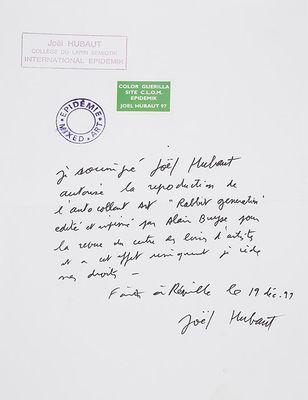 Joël HUBAUT
COLLÈGE DU LAPIN SEMIOTIK
INTERNATIONAL EPIDEMIK
COLOR GUERILLA
SITE C.L.O.M.
EPIDEMIK
JOEL HUBAUT 97
EPIDÉMIE
MIXED ART
je soussigné Joël Hubaut
autorise la reproduction de
l'autocollant "Rabbit generation"
édité et imprimé par Alain Buyse pour
la revue du centre des livres d'artistes
et à cet effet uniquement je cède
mes droits –
Fait à Réville le 19 déc. 97
Joël Hubaut